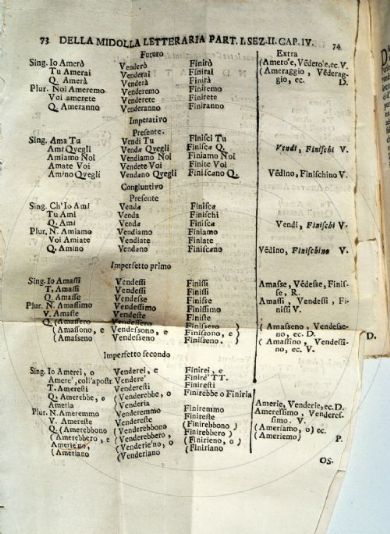 73 DELLA MIDOLLA LETTERARIA PART. I. SEZ. II. CAP. IV. 74
Futuro Extra
Sing. Io Amerò Venderò Finirò (Amerò'e, Vẽdeto'e, ec. V.
Tu Amerai Venderai Finirai (Ameraggio, Vẽderag-
Q. Amerà Venderà Finirà gio, ec. D.
Plur. Noi Ameremo Venderemo Finiremo
Voi amerete Venderete Finirete
Q. Ameranno Venderanno Finiranno
Imperativo
Presente.
Sing. Ama Tu Vendi Tu Finisci Tu
Ami Qvegli Venda Qvegli Finisca Q. Vendi, Finischi V.
Amiamo Noi Vendiamo Noi Finiamo Noi
Amate Voi Vendete Voi Finite Voi
Amino Qvegli Vendano Qvegli Finiscano Q. Vẽdino, Finischino V.
Congiuntivo
Presente
Sing. Ch'Io Ami Venda Finisca
Tu Ami Venda Finischi
Q. Ami Venda Finisca Vendi, Finischi V.
Plur. N. Amiamo Vendiamo Finiamo
Voi Amiate Vendiate Finiate
Q. Amino Vendano Finiscano Vẽdino, Finischino V.
Imperfetto primo
Sing. Io Amassi Vendessi Finissi Amasse, Vẽdesse, Finis-
T. Amassi Vendessi Finissi se, R.
Q. Amasse Vendesse Finisse Amassi, Vendessi, Fi-
Plur. N. Amassimo Vendessimo Finissimo nissi V.
V. Amaste Vendeste Finiste
Q. (Amassero Vendessero Finissero (Amasseno, Vendesse-
(Amassono, e Vendessono, e Finissono, e no, ec. D.
(Amasseno Vendesseno Finisseno. (Amassino, Vendessi-
no, ec. V. D.
Imperfetto secondo
Sing. Io Amerei, o Venderei, e Finirei, e
Amere', coll'apostr. Vendere' Finire' TT.
T. Ameresti Venderesti Finiresti
Q. Amerebbe, o (Venderebbe, o Finirebbe o Finiria
Ameria (Venderia Amerie, Venderie, ec. D.
Plur. N. Ameremmo Venderemmo Finiremmo Ameressimo, Venderes-
V. Amereste Vendereste Finireste simo. V.
Q. (Amerebbono (Venderebbono (Finirebbono) (Ameriamo, o) ec.
(Amerebbero, e (Venderebbero, (Finirebbero ) (Ameriemo) P.
Amerie'no, (Venderie'no, o (Finirieno, o )
(Ameriano (Venderiano (Finiriano
OS.